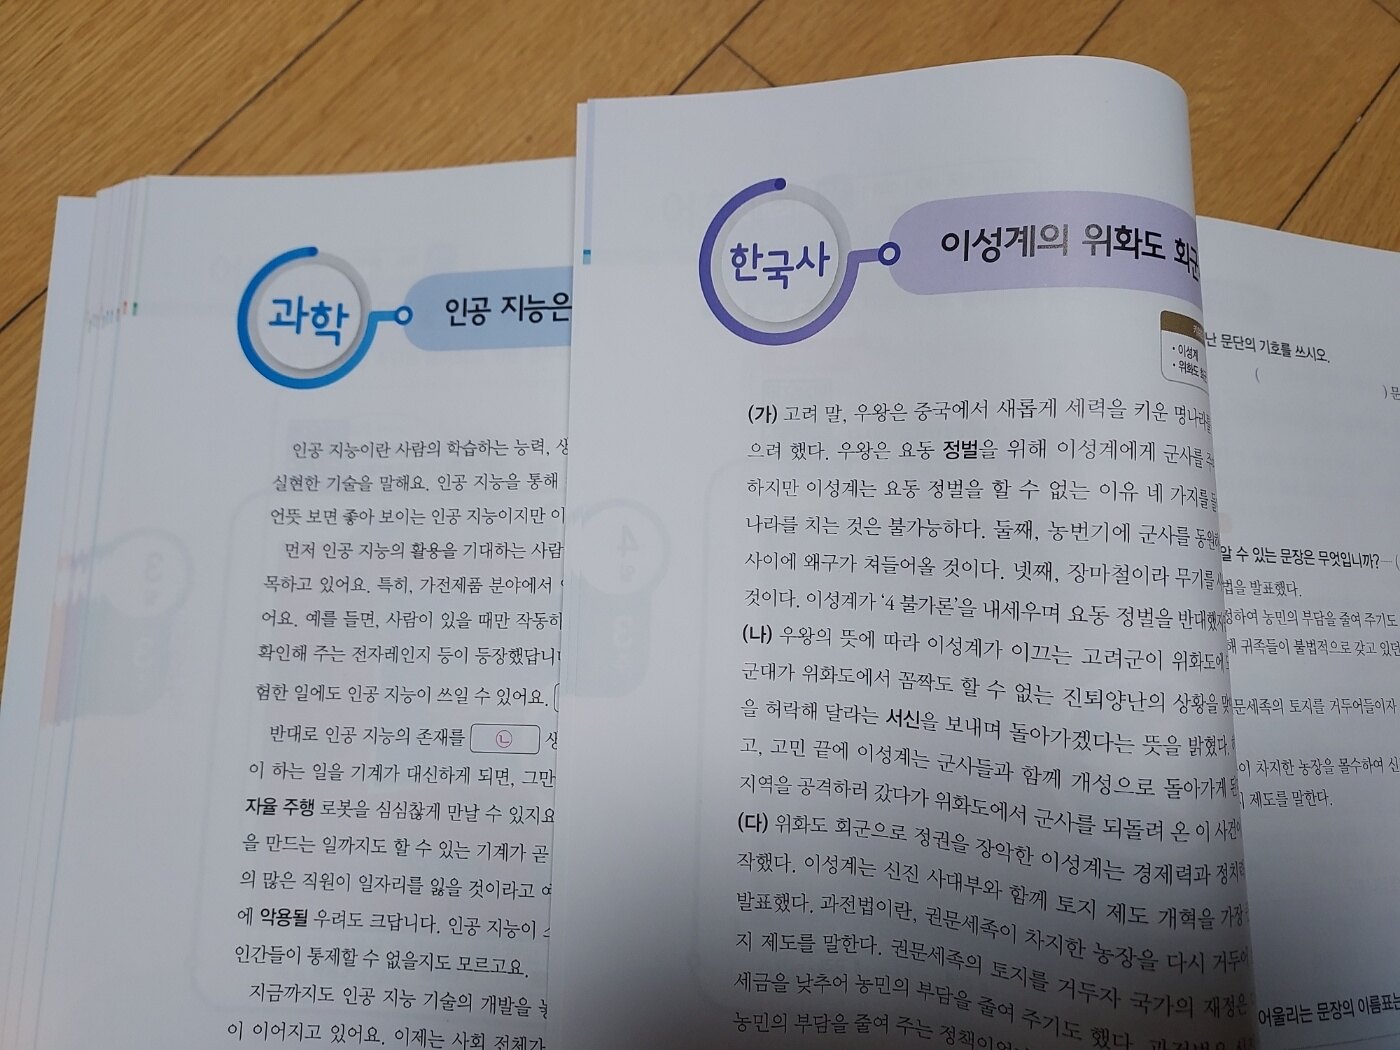 과학
인공 지능은
인공 지능이란 사람의 학습하는 능력,
실현한 기술을 말해요. 인공 지능을 통해
언뜻 보면 좋아 보이는 인공 지능이지만
먼저 인공 지능의 활용을 기대하는 사람
목하고 있어요. 특히, 가전제품 분야에서
어요. 예를 들면, 사람이 있을 때만 작동하
확인해 주는 전자레인지 등이 등장했답니
험한 일에도 인공 지능이 쓰일 수 있어요.
반대로 인공 지능의 존재를 ㉡
이 하는 일을 기계가 대신하게 되면, 그만
자율 주행 로봇을 심심찮게 만날 수 있지요
을 만드는 일까지도 할 수 있는 기계가 곧
의 많은 직원이 일자리를 잃을 것이라고
에 악용될 우려도 크답니다. 인공 지능이
인간들이 통제할 수 없을지도 모르고요.
지금까지도 인공 지능 기술의 개발을
이 이어지고 있어요. 이제는 사회 전체가
한국사
이성계의 위화도 회군
• 이성계
• 위화도
(가) 고려 말, 우왕은 중국에서 새롭게 세력을 키운 명나라를
으려 했다. 우왕은 요동 정벌을 위해 이성계에게 군사를
하지만 이성계는 요동 정벌을 할 수 없는 이유 네 가지를
나라를 치는 것은 불가능하다. 둘째, 농번기에 군사를
사이에 왜구가 쳐들어올 것이다. 넷째, 장마철이라 무기를
것이다. 이성계가 ‘4 불가론’을 내세우며 요동 정벌을 반대했
(나) 우왕의 뜻에 따라 이성계가 이끄는 고려군이 위화도에
군대가 위화도에서 꼼짝도 할 수 없는 진퇴양난의 상황을
을 허락해 달라는 서신을 보내며 돌아가겠다는 뜻을 밝혔다.
고, 고민 끝에 이성계는 군사들과 함께 개성으로 돌아가게
지역을 공격하러 갔다가 위화도에서 군사를 되돌려 온 이
(다) 위화도 회군으로 정권을 장악한 이성계는 경제력과
작했다. 이성계는 신진 사대부와 함께 토지 제도 개혁을 가장
발표했다. 과전법이란, 권문세족이 차지한 농장을 다시
지 제도를 말한다. 권문세족의 토지를 거두자 국가의 재정은
세금을 낮추어 농민의 부담을 줄여 주기도 했다.
농민의 부담을 줄여 주는
난 문단의 기호를 쓰시오.
(
)
알 수 있는 문장은 무엇입니까? (
법을 발표했다.
정하여 농민의 부담을 줄여 주기도
해 귀족들이 불법적으로 갖고 있던
문세족의 토지를 거두어들이자
이 차지한 농장을 몰수하여
제도를 말한다.
어울리는 문장의 이름표는